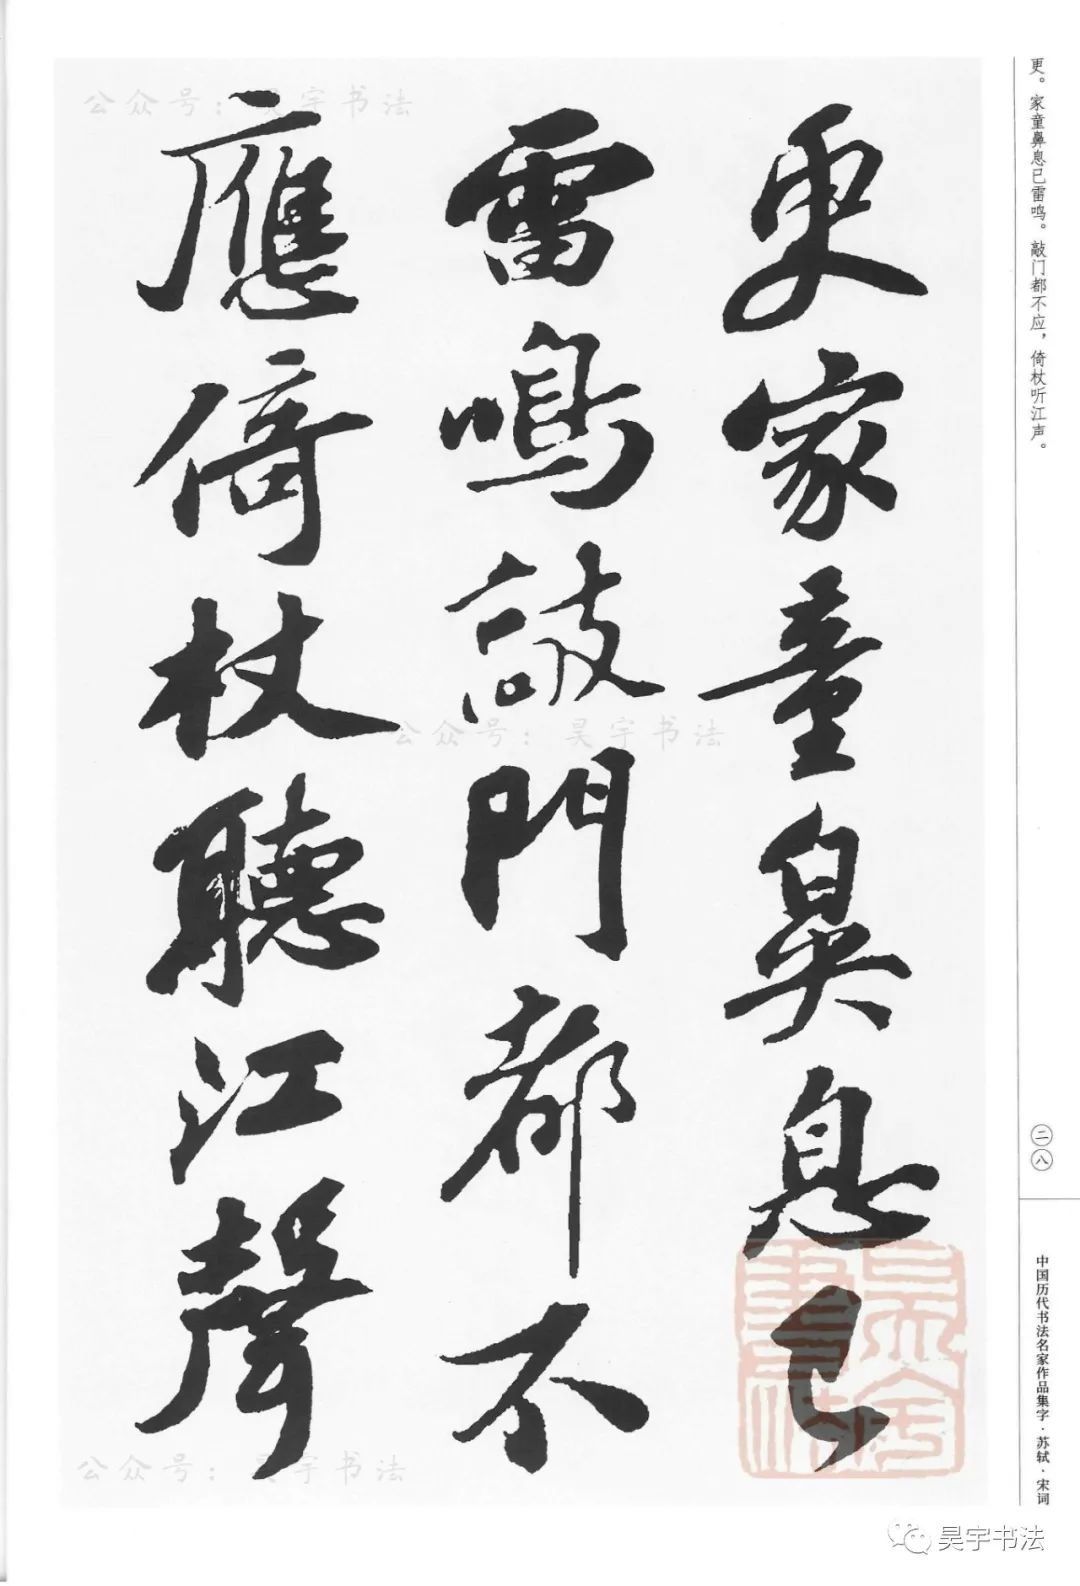 更。家童鼻息已雷鸣。敲门都不应，倚杖听江声。
更家童鼻息已
雷鳴敲門都不
應倚杖聽江聲
二八
中国历代书法名家作品集字·苏轼·宋词
公众号：昊宇书法
公众号：昊宇书法
公众号：昊宇书法
昊宇书法
昊宇书法